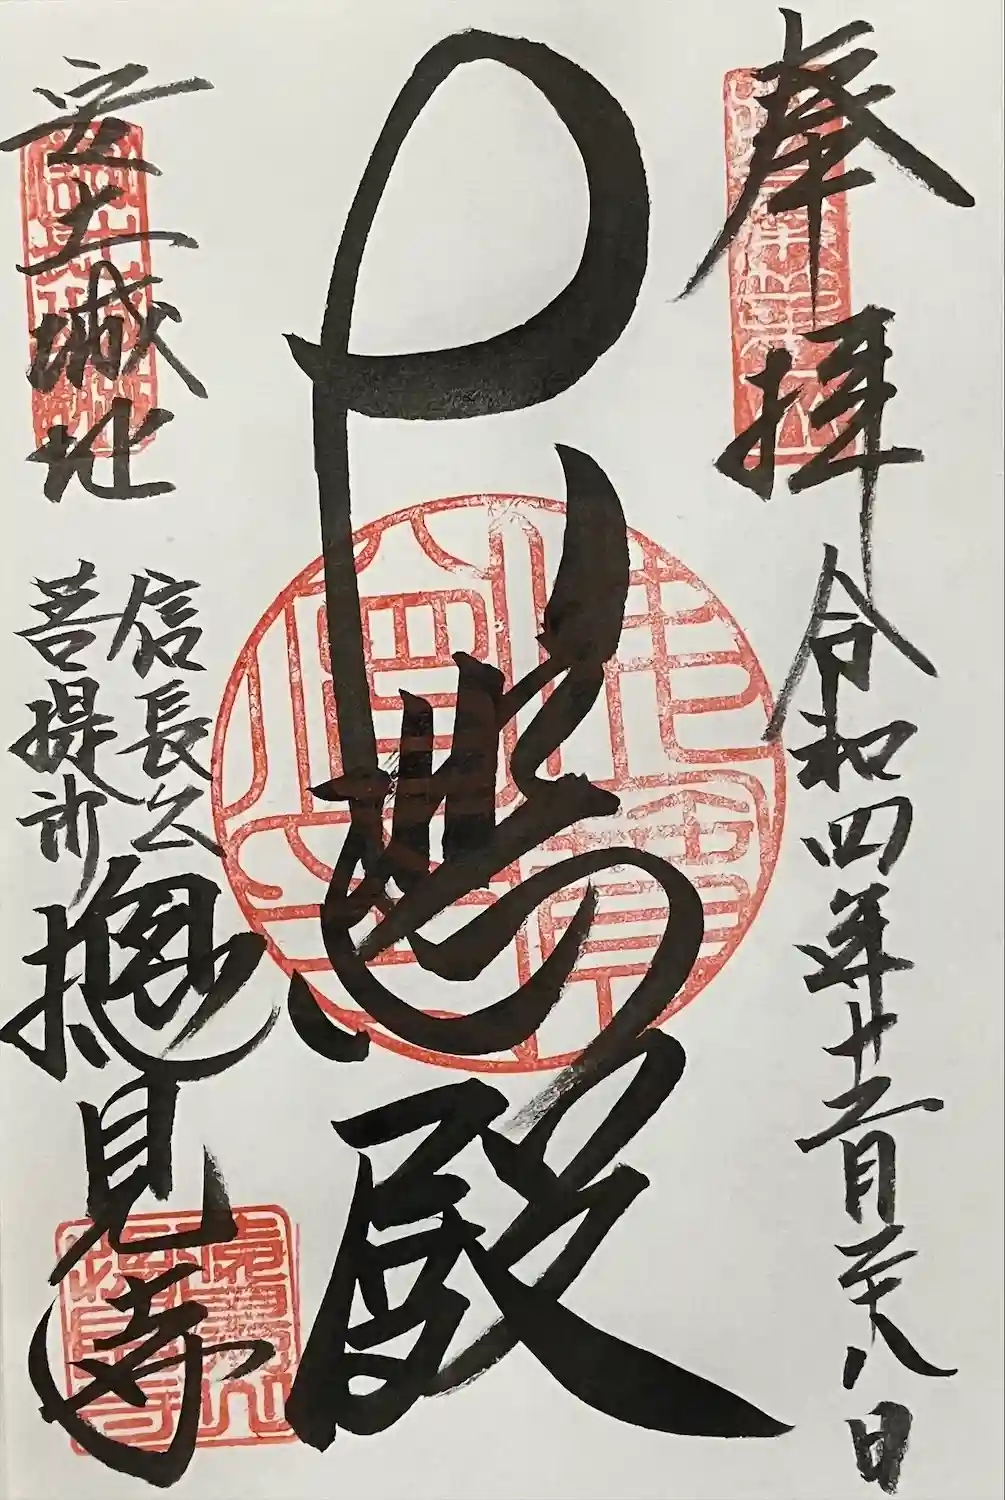 奉拝
令和四年十二月二十八日
大悲殿
安土城址
信長公
菩提所
摠見寺